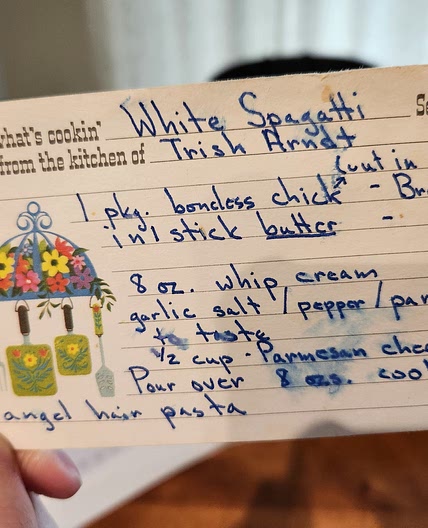 what's cookin' White Spagatti
from the kitchen of Trish Arndt
cut in
1 pkg. boneless chick -
in 1 stick butter -
8 oz. whip cream
garlic salt / pepper / par
to taste
1/2 cup - Parmesan chee
Pour over 8 ozs. cool
angel hair pasta